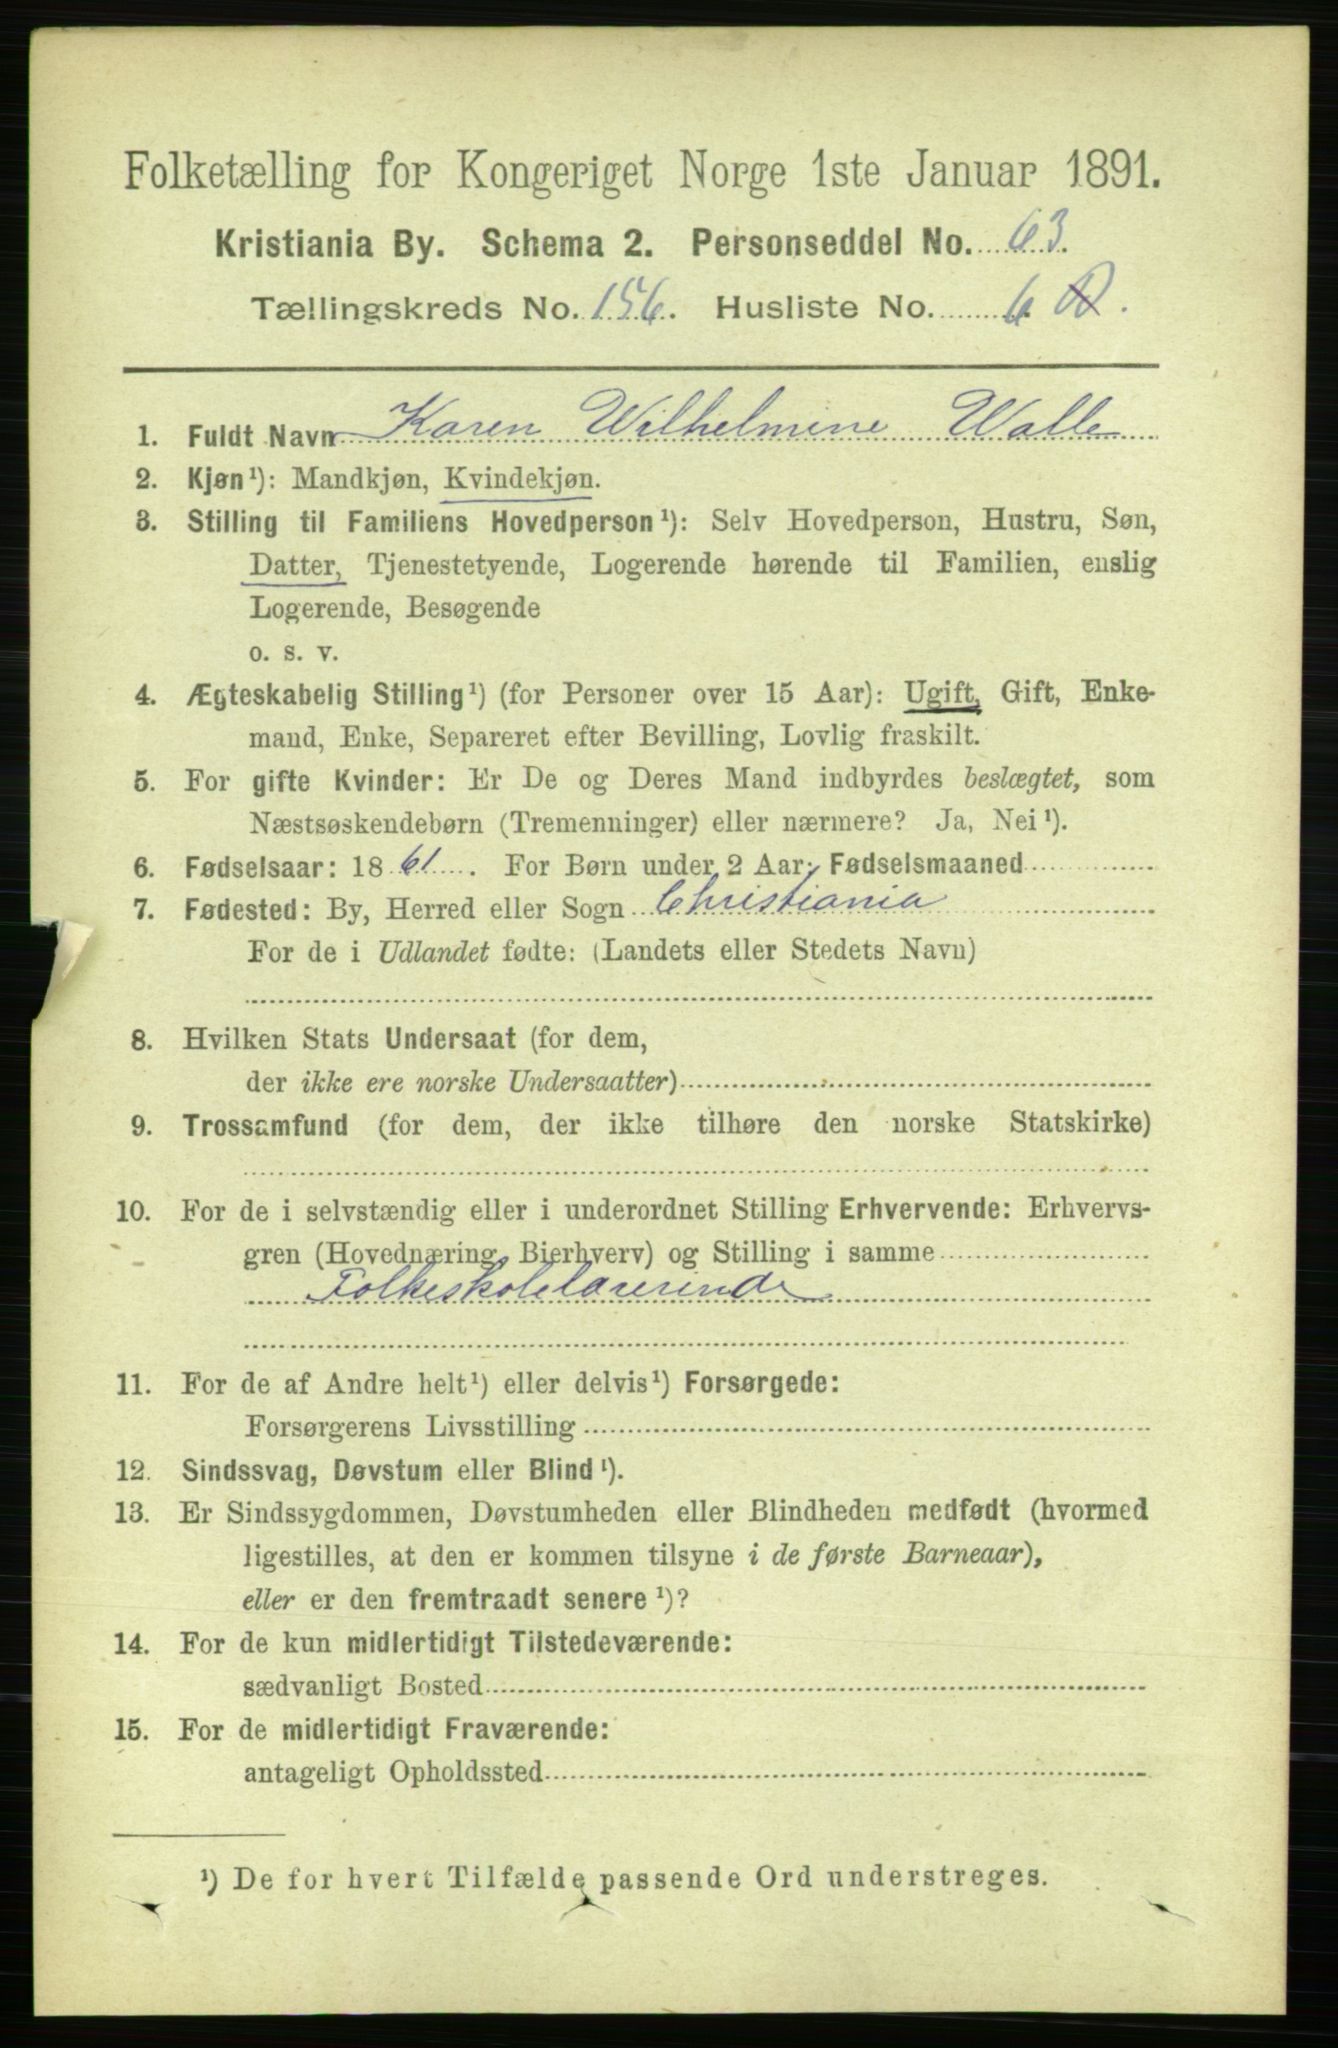 Folketælling for Kongeriget Norge 1ste Januar 1891.
Kristiania By. Schema 2. Personseddel No. 63.
Tællingskreds No. 156. Husliste No. 6
1. Fuldt Navn Karen Wilhelmine Walle
2. Kjøn¹): Mandkjøn, Kvindekjøn.
3. Stilling til Familiens Hovedperson¹): Selv Hovedperson, Hustru, Søn,
Datter, Tjenestetyende, Logerende hørende til Familien, enslig
Logerende, Besøgende
o. s. v.
4. Ægteskabelig Stilling¹) (for Personer over 15 Aar): Ugift, Gift, Enke-
mand, Enke, Separeret efter Bevilling, Lovlig fraskilt.
5. For gifte Kvinder: Er De og Deres Mand indbyrdes beslægtet, som
Næstsøskendebørn (Tremenninger) eller nærmere? Ja, Nei¹).
6. Fødselsaar: 1861. For Børn under 2 Aar: Fødselsmaaned
7. Fødested: By, Herred eller Sogn Christiania
For de i Udlandet fødte: (Landets eller Stedets Navn)
8. Hvilken Stats Undersaat (for dem,
der ikke ere norske Undersaatter)
9. Trossamfund (for dem, der ikke tilhøre den norske Statskirke)
10. For de i selvstændig eller i underordnet Stilling Erhvervende: Erhvervs-
gren (Hovednæring, Bierhverv) og Stilling i samme
Folkeskolelærerinde
11. For de af Andre helt¹) eller delvis¹) Forsørgede:
Forsørgerens Livsstilling
12. Sindssvag, Døvstum eller Blind¹).
13. Er Sindssygdommen, Døvstumheden eller Blindheden medfødt (hvormed
ligestilles, at den er kommen tilsyne i de første Barneaar),
eller er den fremtraadt senere¹)?
14. For de kun midlertidigt Tilstedeværende:
sædvanligt Bosted
15. For de midlertidigt Fraværende:
antageligt Opholdssted
¹) De for hvert Tilfælde passende Ord understreges.